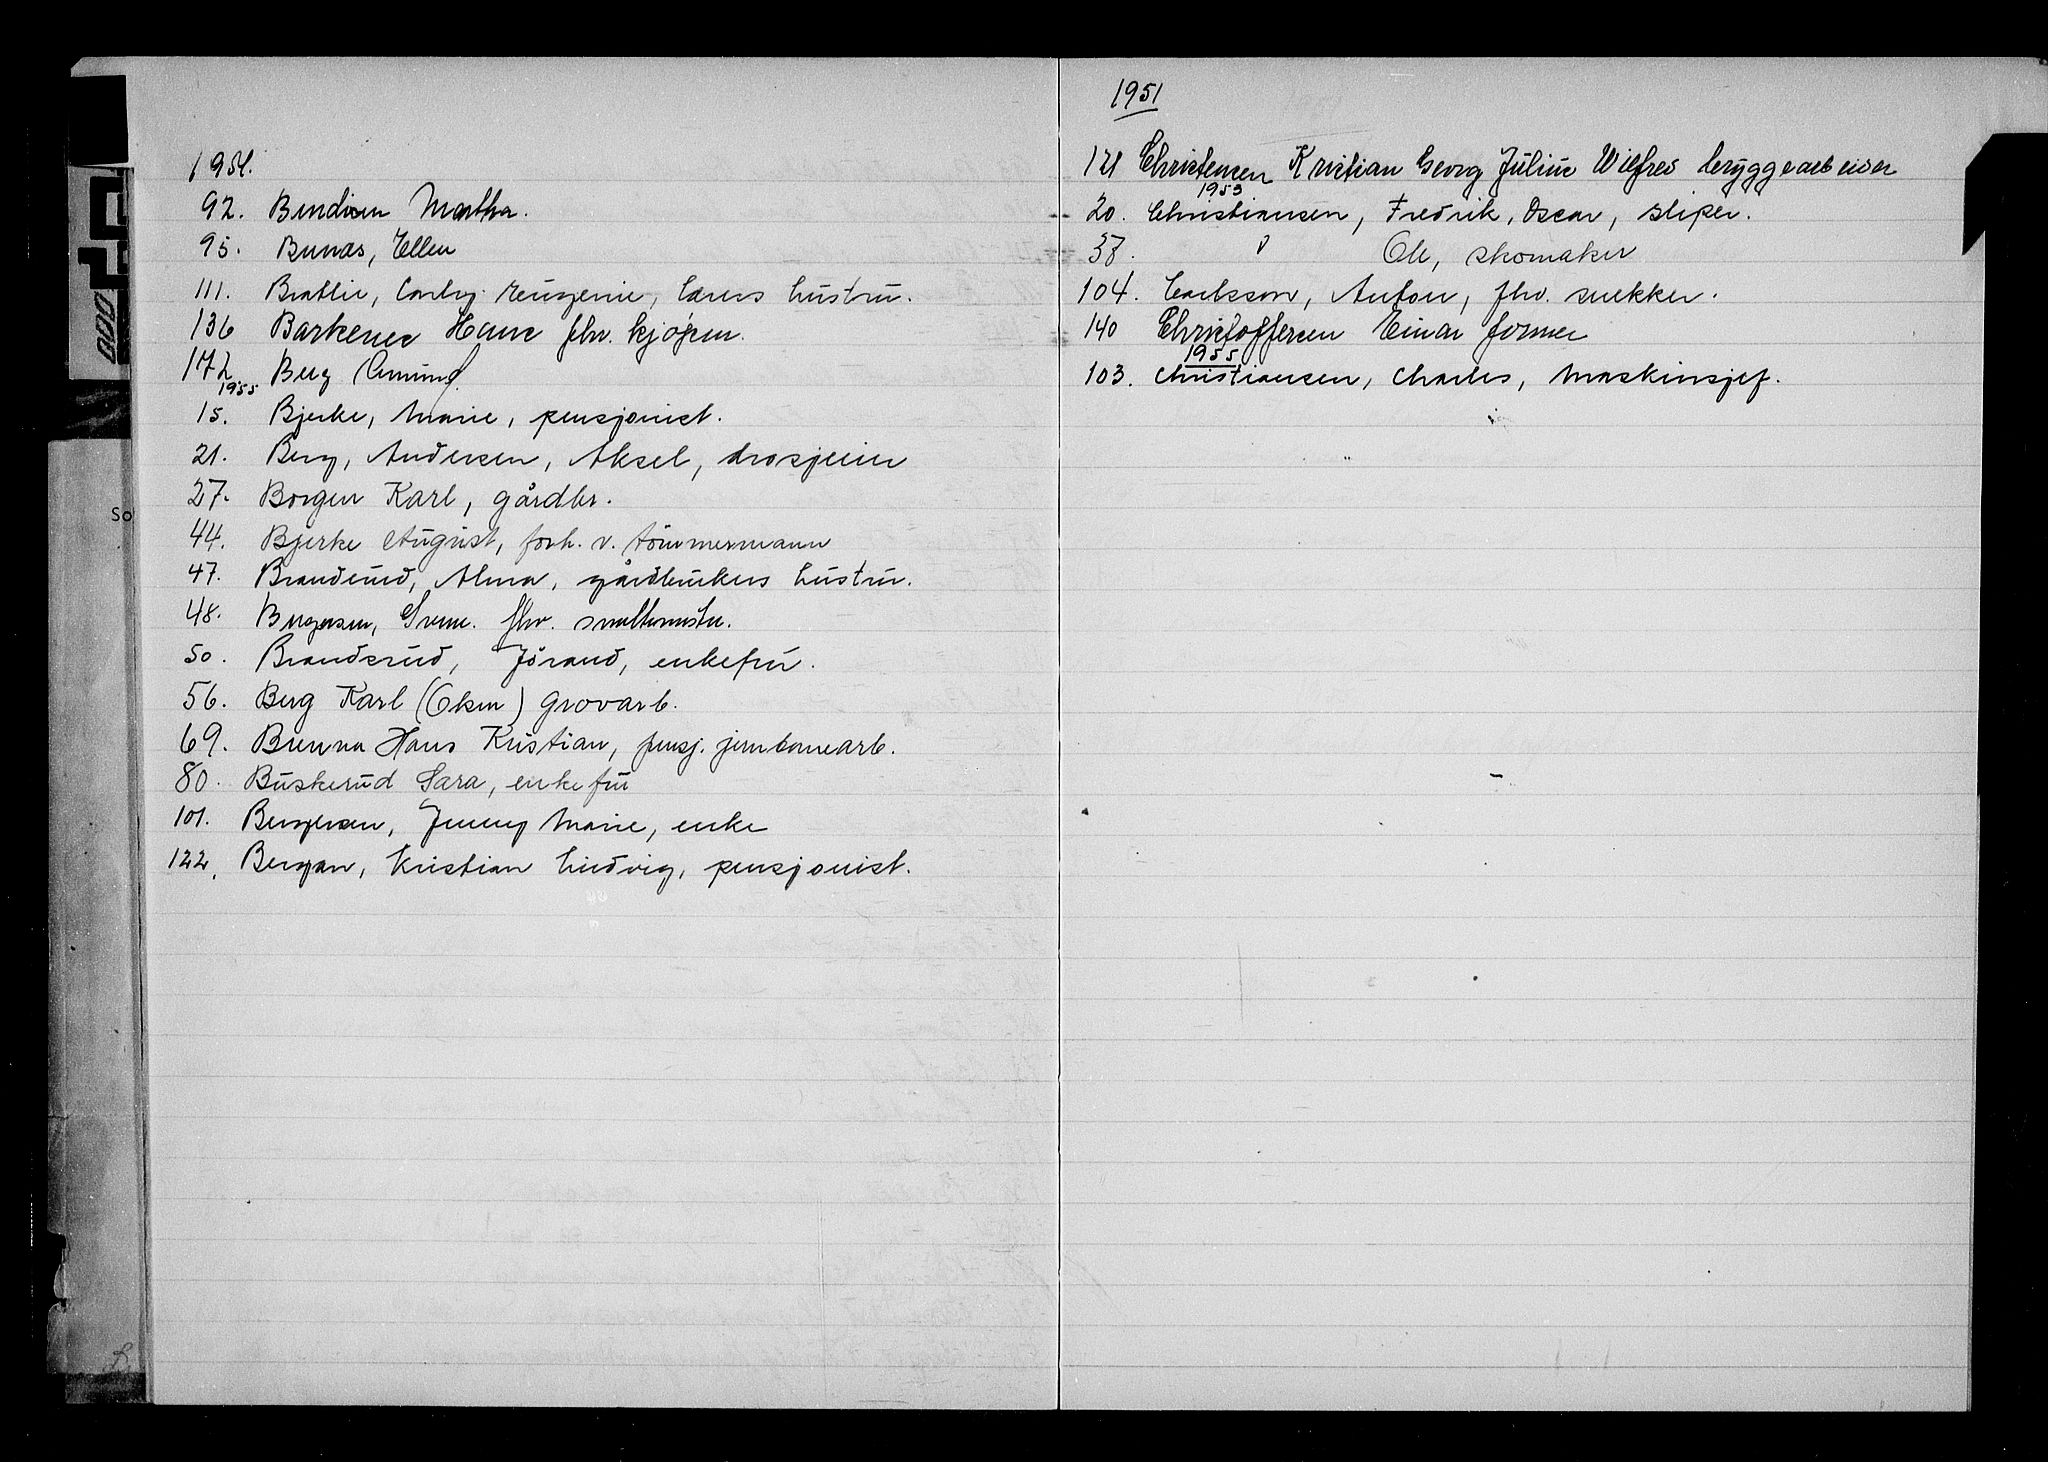 1954.
92. Bendixen Martha.
95. Bunæs, Ellen
111. Bratlie, Eugenie, lærers hustru.
136 Barkenes Hans fhv. kjøpm.
172. Berg Amund.
1955
15. Bjerke, Marie, pensjonist.
21. Berg, Andersen, Aksel, drosjeeier
27. Borgen Karl, gårdbr.
44. Bjerke August, forh. v. tömmermann
47. Brandsrud, Alma, gårdbrukers hustru.
48. Bergersen, fhv. smeltemester.
50. Brandsrud, Jörand, enkefru.
56. Berg Karl (Eken) grovarb.
69. Brenna Hans Kristian, pensj. jernbanearb.
80. Buskerud Sara, enkefru
101. Bergersen, Jenny Marie, enke
122. Bergan, Kristian Ludvig, pensjonist.
1951
121 Christensen Kristian Georg Julius Wilfred bryggearbeider
1953
20. Christiansen, Fredrik, Oscar, sliper.
38. " Ole, skomaker
104. Carlsson, Anton, fhv. snekker.
140 Christoffersen Einar former
1955
103. Christiansen, Charles, maskinsjef.
So